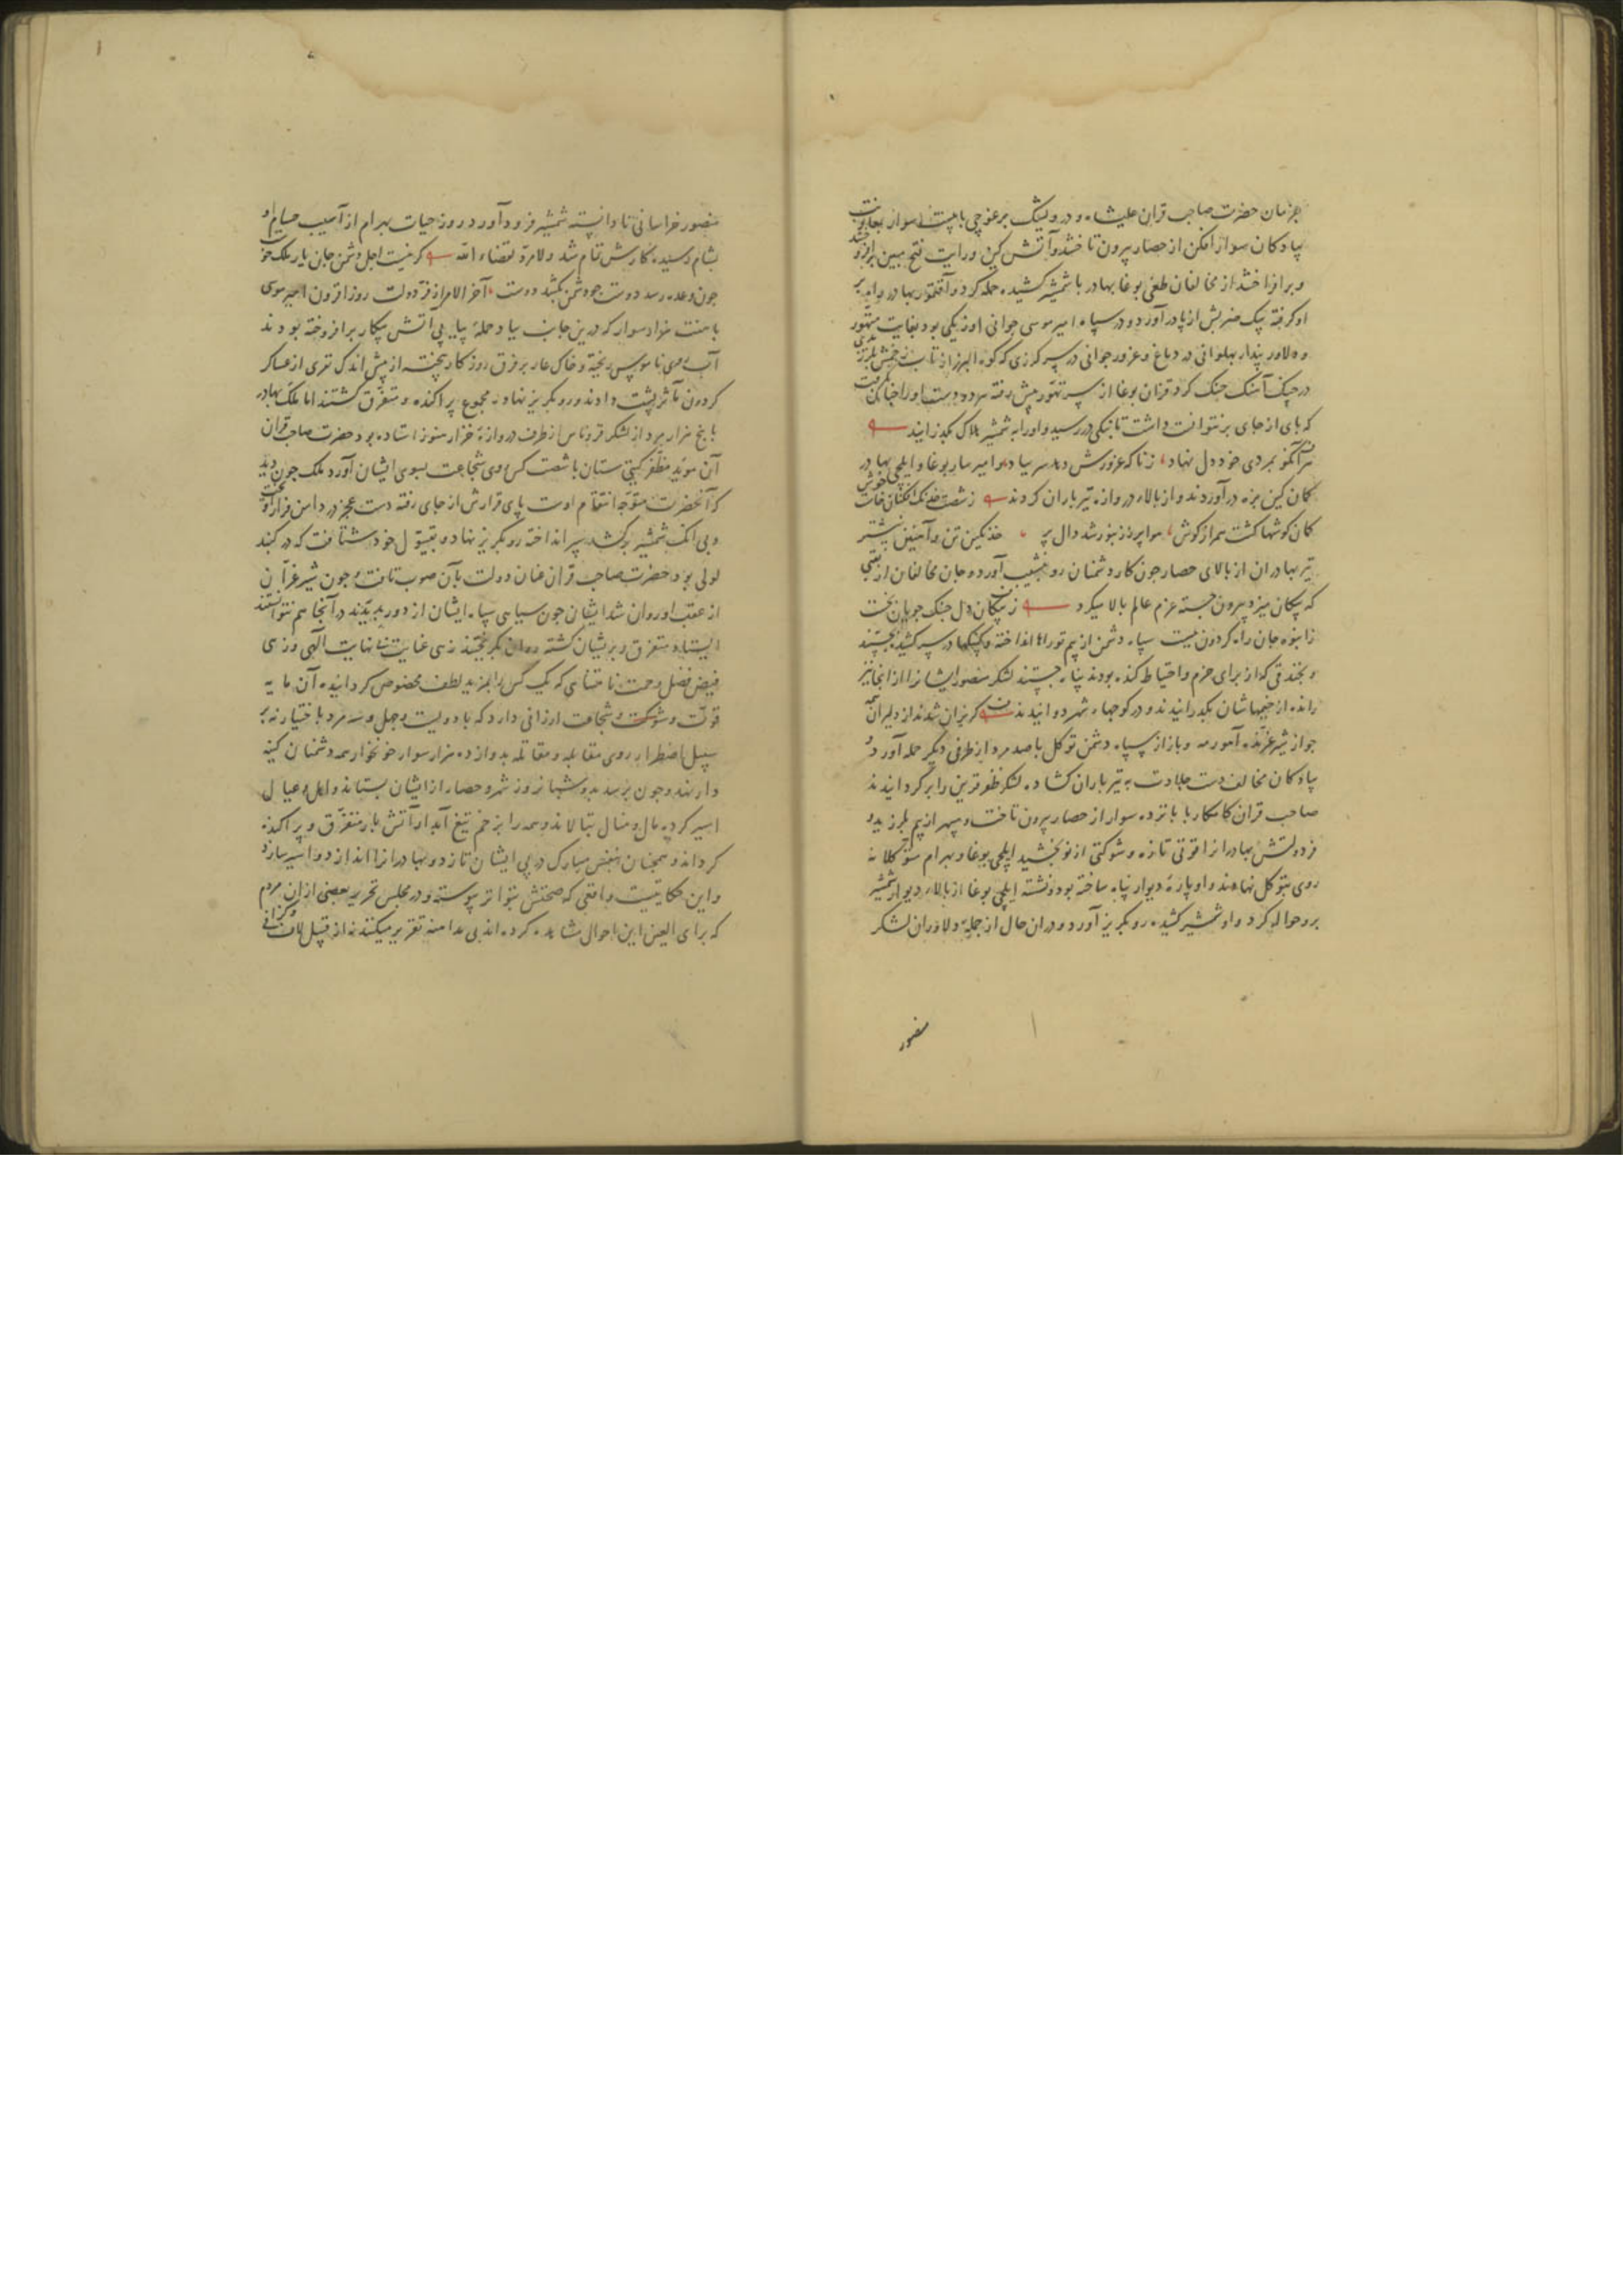 بفرمان حضرت صاحب قران علیشاه و درویشک برغوچی با بیست سوار بمعاونت
پیادکان سوار افکن از حصار بیرون تاختند و آتش کین و رایت فتح مبین
و برافراختند از مخالفان طغی بوغا بهادر با شمشیر کشیده حمله کرد و آقتمور بهادر
او کرفته بیک ضربش از پا درآورد و در سپاه امیر موسی جوانی اوزبکی بود بغایت متهور
و دلاور پندار پهلوانی در دماغ و غرور جوانی در سر کرزی که کوه البرز از تاب زخمش
در جنک آهنک جنک کرد قزان بوغا از سر تهور پیش رفته هر دو دست او را چنان بکرفت
که پای از جای برنتوانست داشت تا ننکی در رسید و او را به شمشیر هلاک بکذرانید
هر آنکو بمردی خود دل نهاد زناکه غرورش دهد سر بباد و امیر سار بوغا و ایلچی بهادر
کمان کین بزه درآوردند و از بالای دروازه تیرباران کردند ز شست خدنک افکنان
کمان کوشها کشت همراز کوش هوا پر ز زنبور شد دال پر خدنکین تن و آهنین نیشتر
تیر بهادران از بالای حصار چون کار دشمنان رو بنشیب آورد و جان مخالفان از تنشی
که پیکان میزد بیرون جسته عزم عالم بالا میکرد ز پیکان دل جنک جویان
ز انبوه جان راه کردون ببست سپاه دشمن از بیم توراها انداخته و کپنکها در سر کشیده بجستند
و بخندقی که از برای حزم و احتیاط کنده بودند پناه جستند لشکر منصور ایشانرا از آنجا نیز
رانده از خیمهاشان بکذرانیدند و در کوچهاء شهر دوانیدند کریزان شدند از دلیران همه
چو از شیر غرنده آهو رمه و باز از سپاه دشمن توکل با صد مرد از طرفی دیکر حمله آورد و
پیادکان مخالف دست جلادت به تیرباران کشاده لشکر ظفر قرین را برکردانیدند
صاحب قران کامکار با پانزده سوار از حصار بیرون تاخت و سپهر از بیم بلرزید و
فر دولتش بهادرانرا قوتی تازه و شوکتی از نو بخشید ایلچی بوغا و بهرام متوکلانه
روی بتوکل نهادند و او پارهٔ دیوار پناه ساخته بود و نشسته ایلچی بوغا از بالای دیوار شمشیر
برو حواله کرد و او شمشیر کشیده رو بکریز آورد و در آن حال از جمله دلاوران لشکر
منصور
منصور خراسانی نادانسته شمشیر فرود آورد و روز حیات بهرام از آسیب حسام او
بشام رسیده کارش تمام شد و لا مرد لقضاء الله کر نیست اجل دشمن جان یار ملک خوست
چون وعده رسد دوست چو دشمن بکشد دوست آخر الامر از فر دولت روز افزون امیر موسی
با هفت هزار سوار که درین جانب بباد حملهٔ پیاپی آتش پیکار برافروخته بودند
آب روی ناموس ریخته و خاک عار بر فرق روزکار بیخته از پیش اندک نفری از عساکر
کردون مآثر پشت دادند و رو بکریز نهاده مجموع پراکنده و متفرق کشتند اما ملک بهادر
با پنج هزار مرد از لشکر قروناس از طرف دروازهٔ خزار هنوز استاده بود حضرت صاحب قران
آن مؤید مظفر کیتی ستان با شصت کس روی شجاعت بسوی ایشان آورد ملک چون دید
که آنحضرت متوجه انتقام اوست پای قرارش از جای رفته دست عجز در دامن فرار
و بی آنک شمشیر برکشد سپر انداخته رو بکریز نهاد و بقیتول خود شتافت که در کنبد
لولی بود حضرت صاحب قران عنان دولت بآن صوب تافت و چون شیر غران
از عقب او روان شد ایشان چون سیاهی سپاه ایشان از دور بدیدند در آنجا هم نتوانستند
ایستاد و متفرق و پریشان کشته روان بکریختند زهی عنایت بی نهایت الهی و زهی
فیض فضل و رحمت نامتناهی که یک کس را بمزید لطف مخصوص کردانیده آن مایه
قوت و شوکت و شجاعت ارزانی دارد که با دویست و چهل و سه مرد باختیار نه بر
سبیل اضطرار روی مقابله و مقاتله بدوازده هزار سوار خونخوار همه دشمنان کینه
دار نهد و چون برسد بدو شبانروز شهر و حصار از ایشان بستاند و اهل و عیال
اسیر کرده مال و منال بتالاند و همه را بزخم تیغ آبدار آتش بار متفرق و پراکنده
کرداند و همچنان بنفس مبارک در پی ایشان تازد و بهادرانرا اندازد و اسیر سازد
و این حکایتیست واقعی که صحتش بتواتر پیوسته و در مجلس تحریر بعضی از آن مردم
که برای العین این احوال مشاهده کرده اند بی مداهنه تقریر میکنند نه از قبیل لاف و کزافی